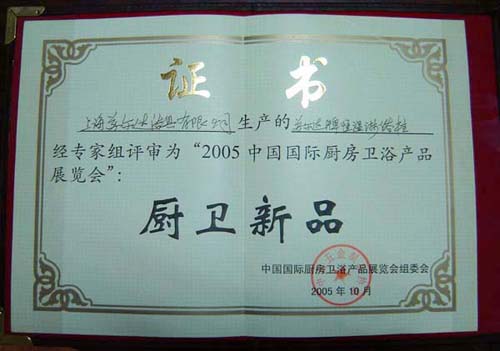 证 书
上海美尔达洁具有限公司生产的美尔达牌恒温淋浴柱
经专家组评审为“2005中国国际厨房卫浴产品
展览会”:
厨卫新品
中国国际厨房卫浴产品展览会组委会
2005年10月